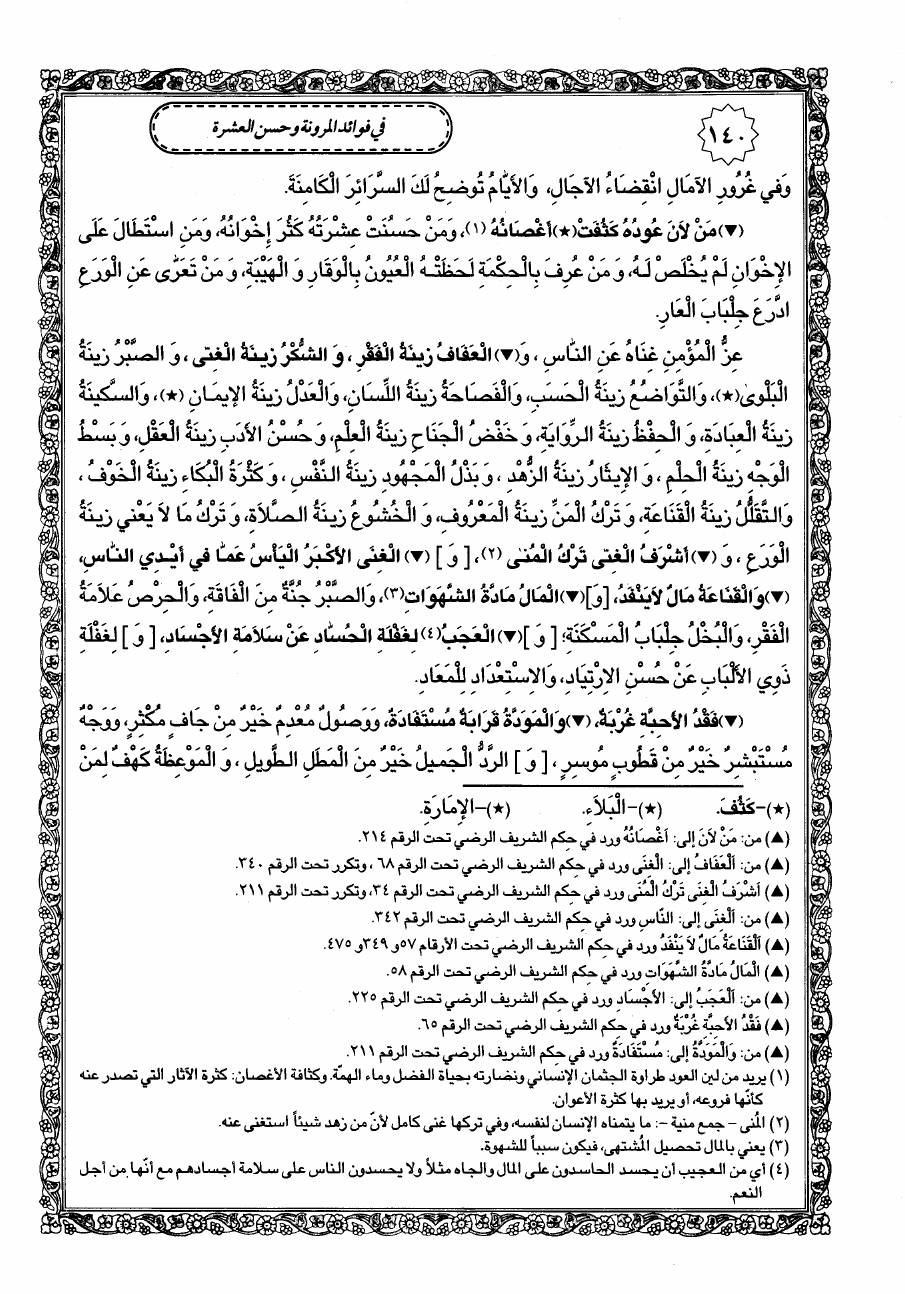 ١٤٠
في فوائد المرونة وحسن العشرة
وَفي غُرُورِ الآمَالِ انْقِضَاءُ الآجَالِ، وَالأَيَّامُ تُوضِحُ لَكَ السَّرَائِرَ الْكَامِنَةَ.
(▼)مَنْ لاَنَ عُودُهُ كَثُفَتْ(★)أَغْصَانُهُ (١)، وَمَنْ حَسُنَتْ عِشْرَتُهُ كَثُرَ إِخْوَانُهُ، وَمَنِ اسْتَطَالَ عَلَى
الإِخْوَانِ لَمْ يُخْلَصْ لَهُ، وَ مَنْ عُرِفَ بِالْحِكْمَةِ لَحَظَتْهُ الْعُيُونُ بِالْوَقَارِ وَ الْهَيْبَةِ، وَ مَنْ تَعَرّٰى عَنِ الْوَرَعِ
ادَّرَعَ جِلْبَابَ الْعَارِ.
عِزُّ الْمُؤْمِنِ غِنَاهُ عَنِ النَّاسِ ، وَ(▼) الْعَفَافُ زِينَةُ الْفَقْرِ ، وَ الشُّكْرُ زِينَةُ الْغِنٰى ، وَ الصَّبْرُ زِينَةُ
الْبَلْوٰى(★)، وَالتَّوَاضُعُ زِينَةُ الْحَسَبِ، وَالْفَصَاحَةُ زِينَةُ اللِّسَانِ، وَالْعَدْلُ زِينَةُ الإِيمَانِ (★)، وَالسَّكِينَةُ
زِينَةُ الْعِبَادَةِ، وَ الْحِفْظُ زِينَةُ الرِّوَايَةِ، وَ خَفْضُ الْجَنَاحِ زِينَةُ الْعِلْمِ، وَ حُسْنُ الأَدَبِ زِينَةُ الْعَقْلِ، وَ بَسْطُ
الْوَجْهِ زِينَةُ الْحِلْمِ ، وَ الإِيثَارُ زِينَةُ الزُّهْدِ ، وَ بَذْلُ الْمَجْهُودِ زِينَةُ النَّفْسِ ، وَ كَثْرَةُ الْبُكَاءِ زِينَةُ الْخَوْفِ ،
وَالتَّقَلُّلُ زِينَةُ الْقَنَاعَةِ، وَ تَرْكُ الْمَنِّ زِينَةُ الْمَعْرُوفِ، وَ الْخُشُوعُ زِينَةُ الصَّلاَةِ، وَ تَرْكُ مَا لاَ يَعْنِي زِينَةُ
الْوَرَعِ ، وَ (▼) أَشْرَفُ الْغِنٰى تَرْكُ الْمُنٰى (٢)، [ وَ ] (▼) الْغِنَى الأَكْبَرُ الْيَأْسُ عَمَّا في أَيْدِي النَّاسِ،
(▼)وَالْقَنَاعَةُ مَالٌ لاَيَنْفَدُ، [وَ](▼)الْمَالُ مَادَّةُ الشَّهَوَاتِ(٣)، وَالصَّبْرُ جُنَّةٌ مِنَ الْفَاقَةِ، وَالْحِرْصُ عَلاَمَةُ
الْفَقْرِ، وَالْبُخْلُ جِلْبَابُ الْمَسْكَنَةِ؛ [ وَ ](▼)الْعَجَبُ(٤)لِغَفْلَةِ الْحُسَّادِ عَنْ سَلاَمَةِ الأَجْسَادِ، [ وَ ] لِغَفْلَةِ
ذَوِي الأَلْبَابِ عَنْ حُسْنِ الإِرْتِيَادِ، وَالإِسْتِعْدَادِ لِلْمَعَادِ.
(▼)فَقْدُ الأَحِبَّةِ غُرْبَةٌ، (▼)وَالْمَوَدَّةُ قَرَابَةٌ مُسْتَفَادَةٌ، وَوَصُولٌ مُعْدِمٌ خَيْرٌ مِنْ جَافٍ مُكْثِرٍ، وَوَجْهٌ
مُسْتَبْشِرٌ خَيْرٌ مِنْ قَطُوبٍ مُوسِرٍ ، [ وَ ] الرَّدُّ الْجَمِيلُ خَيْرٌ مِنَ الْمَطَلِ الطَّوِيلِ ، وَ الْمَوْعِظَةُ كَهْفٌ لِمَنْ
(★)-كَثُفَ. (★)-الْبَلاَءِ. (★)-الإِمَارَةِ.
(▲) من: مَنْ لاَنَ إلى: أَغْصَانُهُ ورد في حكم الشريف الرضي تحت الرقم ٢١٤.
(▲) من: اَلْعَفَافُ إلى: الْغِنَى ورد في حكم الشريف الرضي تحت الرقم ٦٨ ، وتكرر تحت الرقم ٣٤٠.
(▲) أَشْرَفُ الْغِنَى تَرْكُ الْمُنَى ورد في حكم الشريف الرضي تحت الرقم ٣٤، وتكرر تحت الرقم ٢١١.
(▲) من: اَلْغِنَى إلى: النَّاسِ ورد في حكم الشريف الرضي تحت الرقم ٣٤٢.
(▲) اَلْقَنَاعَةُ مَالٌ لاَ يَنْفَدُ ورد في حكم الشريف الرضي تحت الأرقام ٥٧ و ٣٤٩ و ٤٧٥.
(▲) الْمَالُ مَادَّةُ الشَّهَوَاتِ ورد في حكم الشريف الرضي تحت الرقم ٥٨.
(▲) من: اَلْعَجَبُ إلى: الأَجْسَادِ ورد في حكم الشريف الرضي تحت الرقم ٢٢٥.
(▲) فَقْدُ الأَحِبَّةِ غُرْبَةٌ ورد في حكم الشريف الرضي تحت الرقم ٦٥.
(▲) من: وَالْمَوَدَّةُ إلى: مُسْتَفَادَةٌ ورد في حكم الشريف الرضي تحت الرقم ٢١١.
(١) يريد من لين العود طراوة الجثمان الإنساني ونضارته بحياة الفضل وماء الهمّة. وكثافة الأغصان: كثرة الآثار التي تصدر عنه
كأنّها فروعه، أو يريد بها كثرة الأعوان.
(٢) المُنى - جمع منية -: ما يتمناه الإنسان لنفسه، وفي تركها غنى كامل لأنّ من زهد شيئاً استغنى عنه.
(٣) يعني بالمال تحصيل المُشتهى، فيكون سبباً للشهوة.
(٤) أي من العجيب أن يحسد الحاسدون على المال والجاه مثلاً ولا يحسدون الناس على سلامة أجسادهم مع أنّها من أجل
النعم.